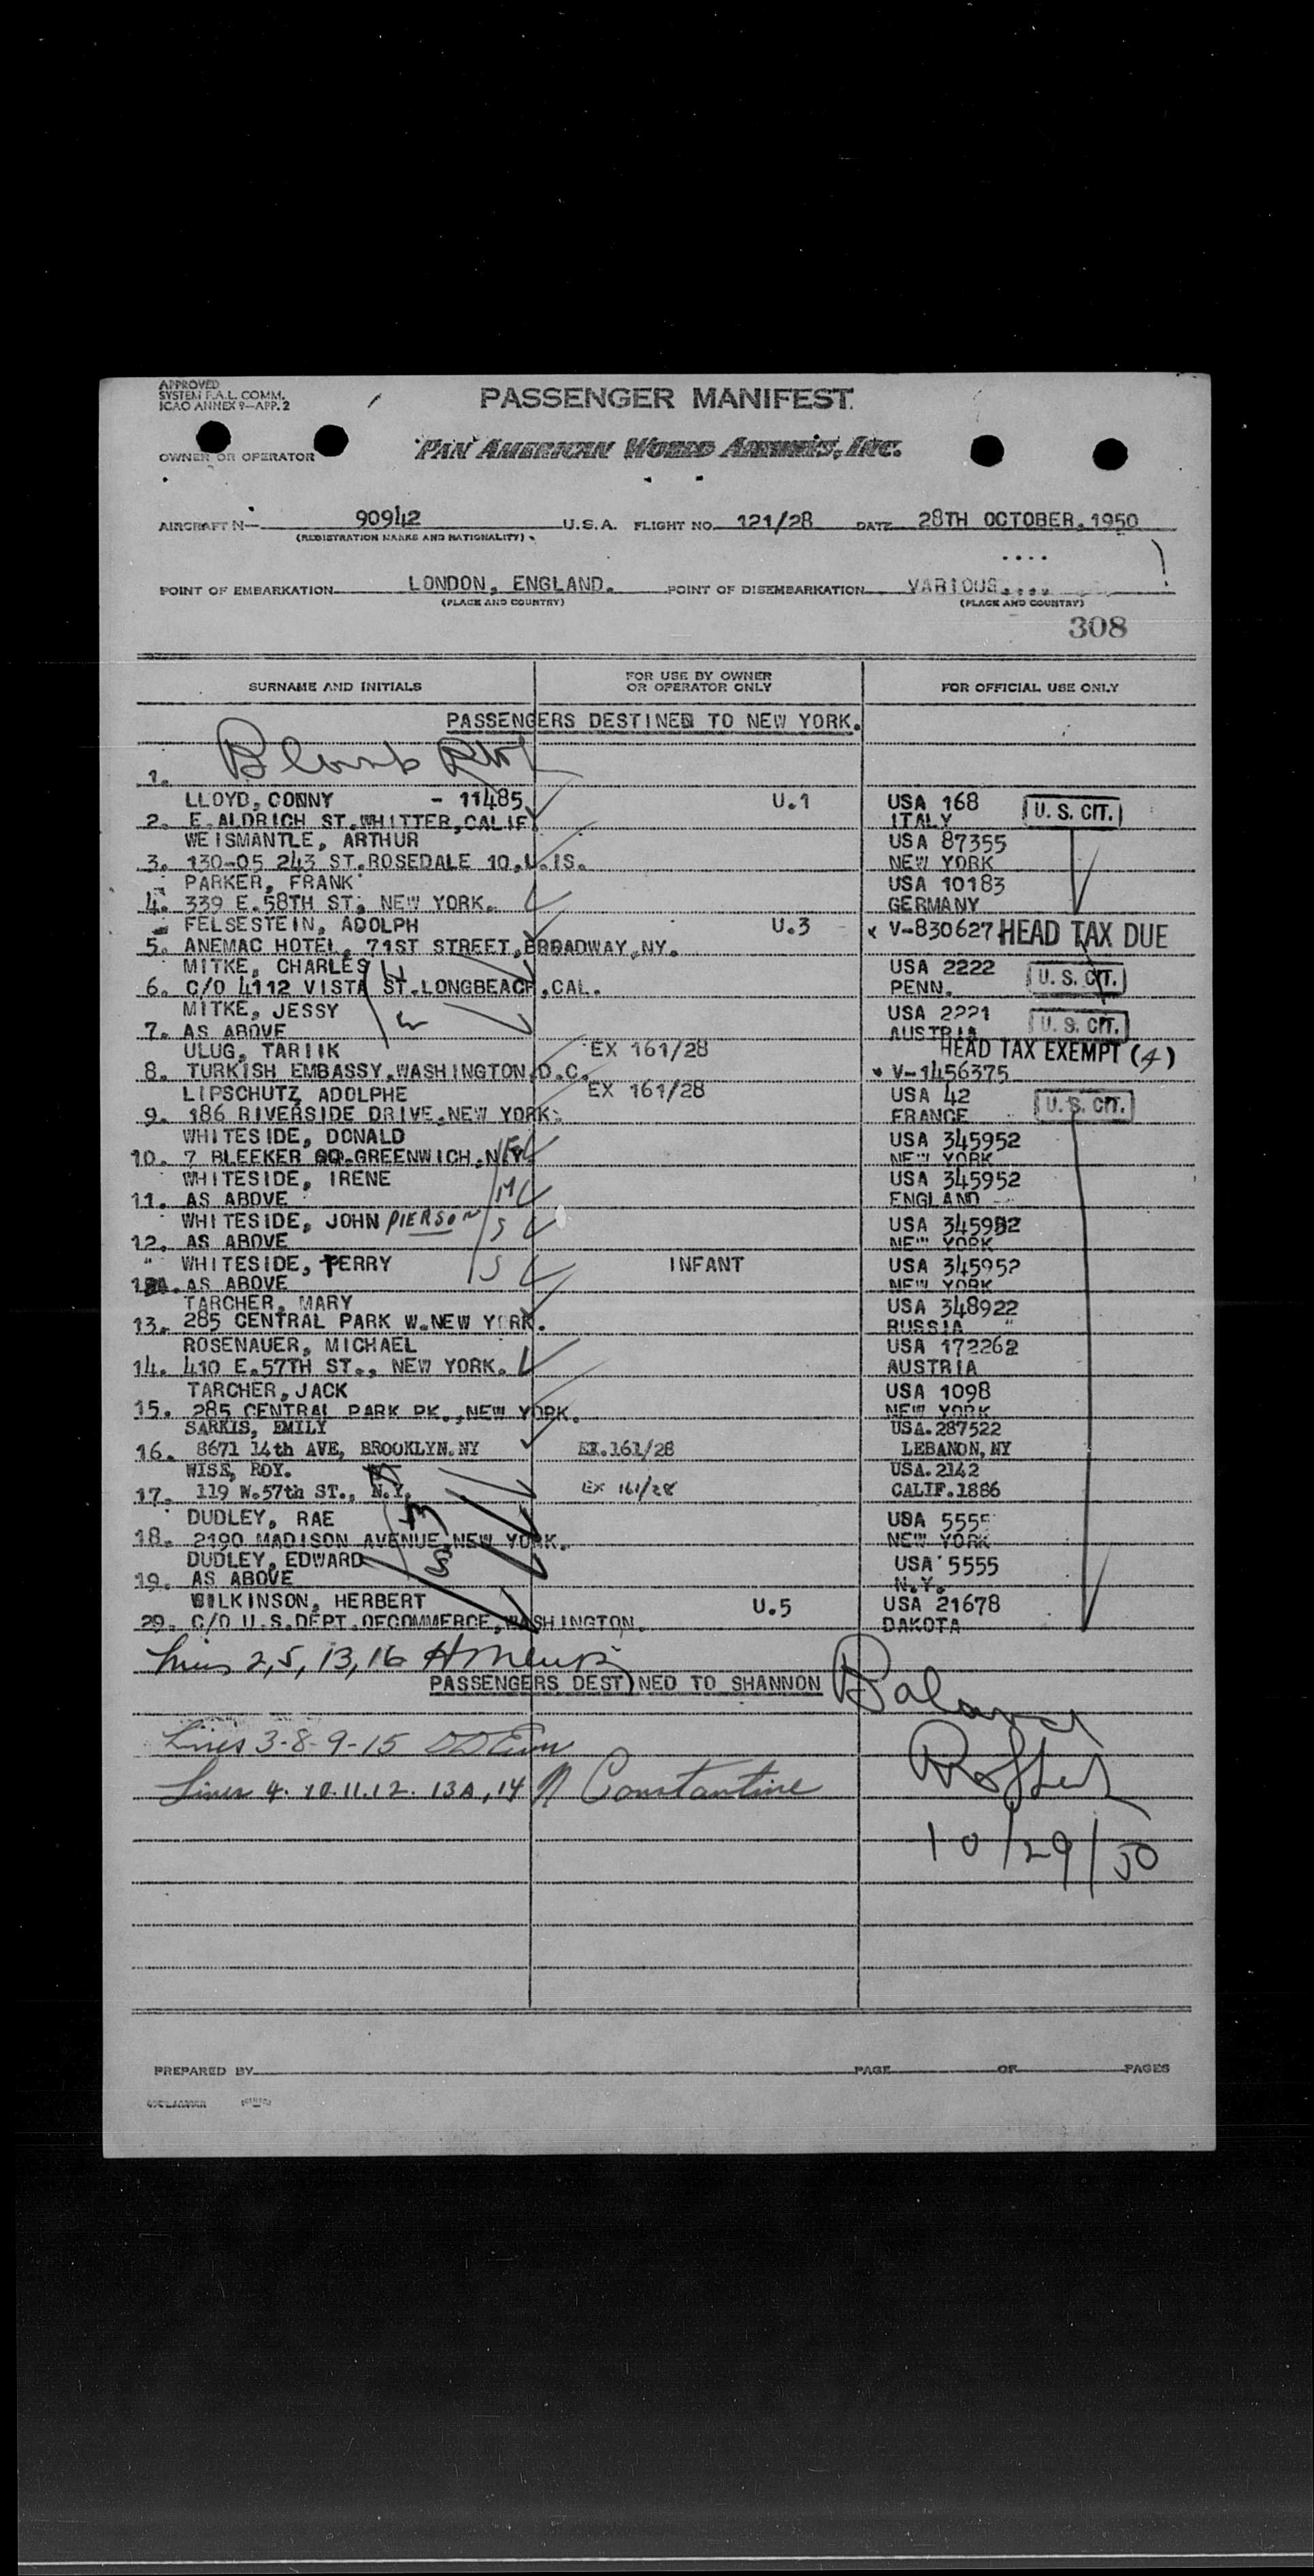 APPROVED
SYSTEM F.A.L. COMM.
ICAO ANNEX 9—APP. 2
PASSENGER MANIFEST
OWNER OR OPERATOR
PAN AMERICAN WORLD AIRWAYS, INC.
AIRCRAFT N— 90942 U.S.A. FLIGHT NO. 121/28 DATE 28TH OCTOBER, 1950
(REGISTRATION MARKS AND NATIONALITY)
POINT OF EMBARKATION LONDON, ENGLAND. POINT OF DISEMBARKATION VARIOUS....
(PLACE AND COUNTRY) (PLACE AND COUNTRY)
308
SURNAME AND INITIALS FOR USE BY OWNER OR OPERATOR ONLY FOR OFFICIAL USE ONLY
PASSENGERS DESTINED TO NEW YORK.
1. Blank
LLOYD, CONNY - 11485 U.1 USA 168 U. S. CIT.
2. E.ALDRICH ST.WHITTER,CALIF ITALY
WEISMANTLE, ARTHUR USA 87355
3. 130-05 243 ST.ROSEDALE 10,L.IS. NEW YORK
PARKER, FRANK USA 10183
4. 339 E.58TH ST, NEW YORK. GERMANY
FELSESTEIN, ADOLPH U.3 V-830627 HEAD TAX DUE
5. ANEMAC HOTEL, 71ST STREET,BROADWAY,NY.
MITKE, CHARLES H USA 2222 U. S. CIT.
6. C/O 4112 VISTA ST.LONGBEACH,CAL. PENN.
MITKE, JESSY USA 2221 U. S. CIT.
7. AS ABOVE AUSTRIA
ULUG, TARIIK EX 161/28 HEAD TAX EXEMPT (4)
8. TURKISH EMBASSY,WASHINGTON,D.C. V-1456375
LIPSCHUTZ, ADOLPHE EX 161/28 USA 42 U. S. CIT.
9. 186 RIVERSIDE DRIVE,NEW YORK. FRANCE
WHITESIDE, DONALD F USA 345952
10. 7 BLEEKER SQ.GREENWICH,N.Y. NEW YORK
WHITESIDE, IRENE M USA 345952
11. AS ABOVE ENGLAND
WHITESIDE, JOHN PIERSON S USA 345952
12. AS ABOVE NEW YORK
WHITESIDE, TERRY S INFANT USA 345952
AS ABOVE NEW YORK
TARCHER, MARY USA 348922
13. 285 CENTRAL PARK W.NEW YORK. RUSSIA
ROSENAUER, MICHAEL USA 172262
14. 410 E.57TH ST., NEW YORK. AUSTRIA
TARCHER, JACK USA 1098
15. 285 CENTRAL PARK PK.,NEW YORK. NEW YORK
SARKIS, EMILY USA.287522
16. 8671 14th AVE, BROOKLYN.NY EX.161/28 LEBANON, NY
WISE, ROY. USA.2142
17. 119 W.57th ST., N.Y. EX 161/28 CALIF.1886
DUDLEY, RAE USA 5555
18. 2190 MADISON AVENUE,NEW YORK. NEW YORK
DUDLEY, EDWARD S USA 5555
19. AS ABOVE N.Y.
WILKINSON, HERBERT U.5 USA 21678
20. C/O U.S.DEPT.OFCOMMERCE,WASHINGTON. DAKOTA
Lines 2, 5, 13, 16
PASSENGERS DESTINED TO SHANNON
Balance
Lines 3-8-9-15
Lines 4. 10. 11. 12. 13A, 14 N Constantine
10/29/50
PREPARED BY PAGE OF PAGES